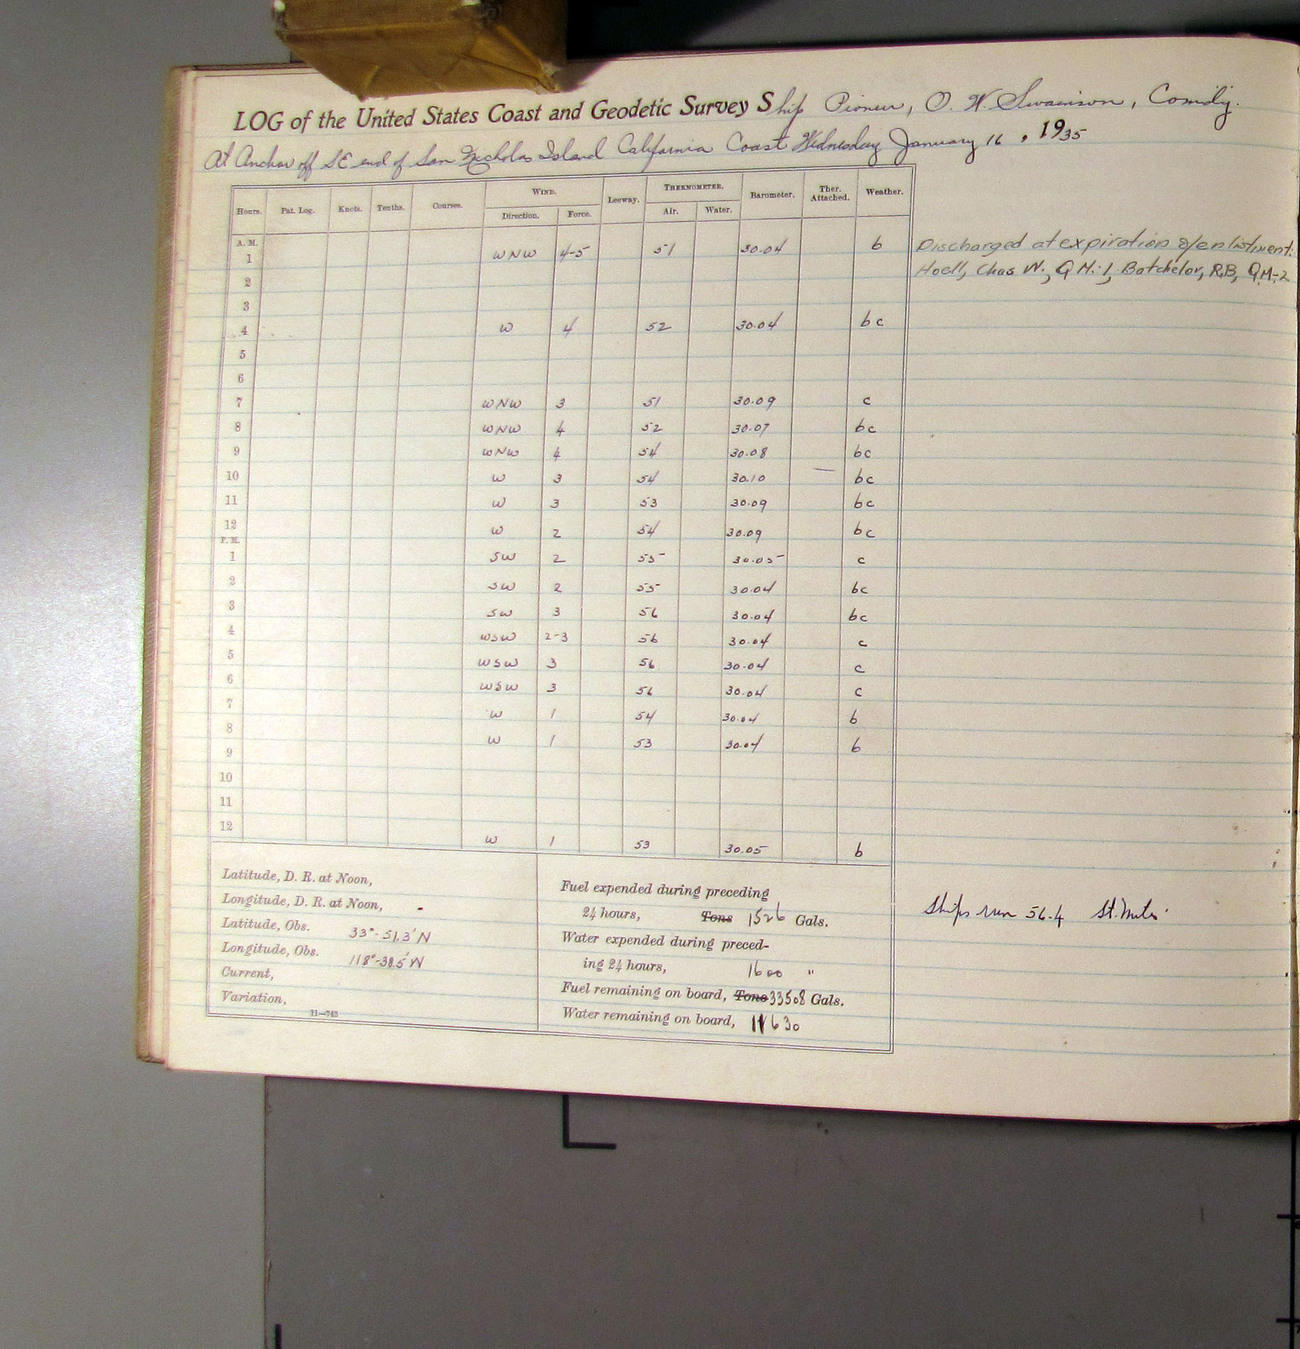 LOG of the United States Coast and Geodetic Survey Ship Pioneer, O. W. Swainson, Comdg.
At Anchor off SE end of San Nicholas Island California Coast Wednesday January 16, 1935
Hours. Pat. Log. Knots. Tenths. Courses. WIND. Direction. Force. Leeway. THERMOMETER. Air. Water. Barometer. Ther. Attached. Weather.
A. M.
1 WNW 4-5 51 30.04 b
2
3
4 W 4 52 30.04 bc
5
6
7 WNW 3 51 30.09 c
8 WNW 4 52 30.07 bc
9 WNW 4 54 30.08 bc
10 W 3 54 30.10 — bc
11 W 3 53 30.09 bc
12 W 2 54 30.09 bc
P. M.
1 SW 2 55 30.05 c
2 SW 2 55 30.04 bc
3 SW 3 56 30.04 bc
4 WSW 2-3 56 30.04 c
5 WSW 3 56 30.04 c
6 WSW 3 56 30.04 c
7 W 1 54 30.04 b
8 W 1 53 30.04 b
9
10
11
12 W 1 53 30.05 b
Discharged at expiration of enlistment:
Hoell, Chas W., QM-1, Batchelor, R.B, QM-2
Latitude, D. R. at Noon,
Longitude, D. R. at Noon, -
Latitude, Obs. 33°-51.3' N
Longitude, Obs. 118°-38.5' W
Current,
Variation,
11—743
Fuel expended during preceding
24 hours, Tons 1526 Gals.
Water expended during preced-
ing 24 hours, 1600 "
Fuel remaining on board, Tons 33508 Gals.
Water remaining on board, 11630
Ships run 56.4 St. Miles